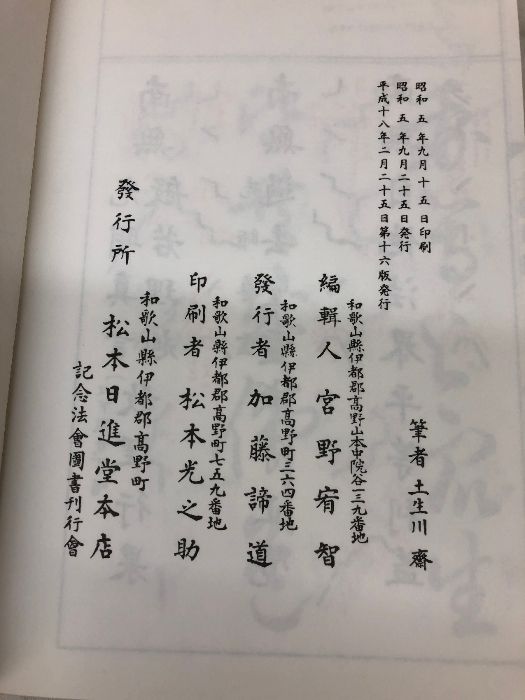 昭和五年九月十五日印刷
昭和五年九月二十五日発行
平成十八年二月二十五日第十六版発行
筆者 土生川 齋
和歌山縣伊都郡高野山本中院谷一三九番地
編輯人 宮野宥智
和歌山縣伊都郡高野町三六四番地
發行者 加藤諦道
和歌山縣伊都郡高野町七五九番地
印刷者 松本光之助
和歌山縣伊都郡高野町
發行所 松本日進堂本店
記念法會圖書刊行會